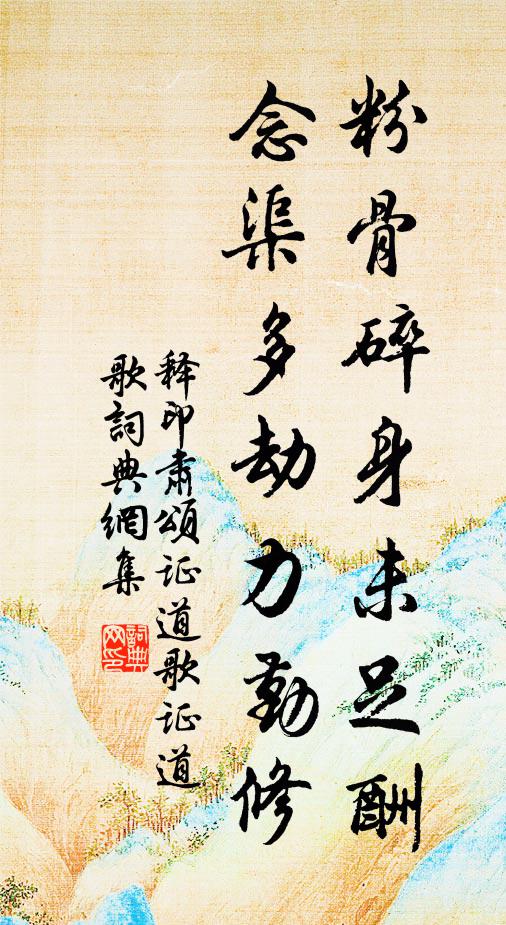 粉骨碎身未足酬
念渠多劫力勤修
释印肃颂证道歌证道
歌詞典網集
詞典
网印